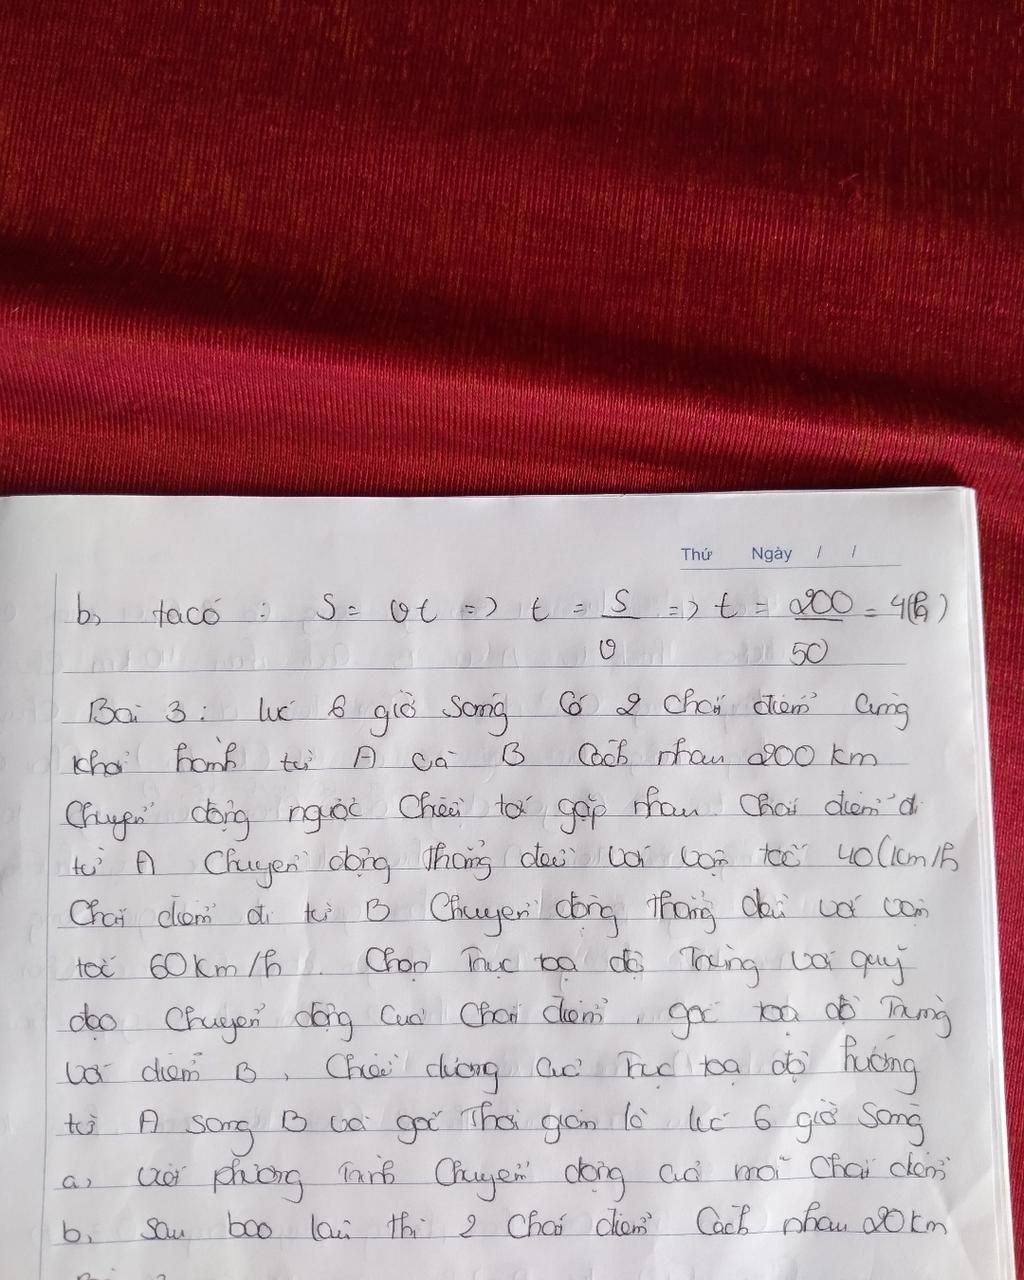 Thứ Ngày / /
b, ta có : S = vt => t = S/v => t = 200/50 = 4(h)
Bài 3 : lúc 6 giờ sáng có 2 chất điểm cùng
khởi hành từ A và B cách nhau 200 km
chuyển động ngược chiều tới gặp nhau. Chất điểm đi
từ A chuyển động thẳng đều với vận tốc 40(km/h
Chất điểm đi từ B chuyển động thẳng đều với vận
tốc 60km/h . Chọn Trục toạ độ Trùng với quỹ
đạo chuyển động của chất điểm , gốc toạ độ Trùng
với điểm B , chiều dương của Trục toạ độ hướng
từ A sang B và gốc Thời gian là lúc 6 giờ sáng
a, viết phương Trình chuyển động của mỗi chất điểm
b, sau bao lâu thì 2 chất điểm cách nhau 20km